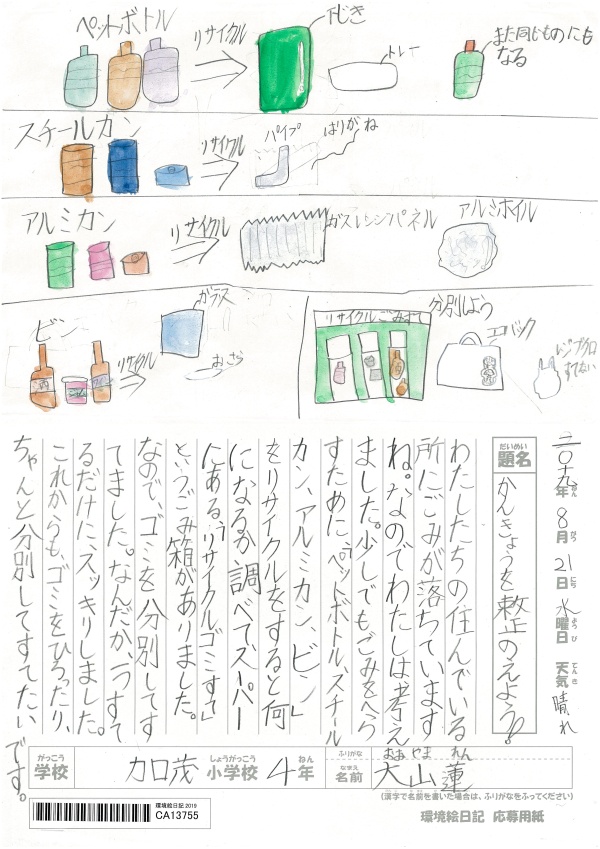 ペットボトル
リサイクル
下じき
トレー
また同じものにも
なる
スチールカン
リサイクル
パイプ
はりがね
アルミカン
リサイクル
ガスレンジパネル
アルミホイル
ビン
リサイクル
ガラス
おさら
分別しよう
リサイクルごみすて
エコバック
レジブクロ
すてない
二〇十九年 8月 21日 水曜日 天気 晴れ
ねん がつ にち ようび てんき
だいめい
題名
かんきょうを整のえよう。
わたしたちの住んでいる
所にごみが落ちています
ね。なのでわたしは考え
ました。少しでもごみをへら
すために、「ペットボトル、スチール
カン、アルミカン、ビン」
をリサイクルをすると何
になるか調べて、スーパー
にある「リサイクルゴミすて」
というごみ箱がありました。
なので、ゴミを分別してす
てました。なんだか、一つすて
るだけに、スッキリしました。
これからも、ゴミをひろったり、
ちゃんと分別してすてたい
です。
がっこう しょうがっこう ねん
学校 加茂 小学校 4年
ふりがな おおやま れん
なまえ
名前 大山蓮
(漢字で名前を書いた場合は、ふりがなをふってください)
環境絵日記 2019
CA13755
環境絵日記 応募用紙